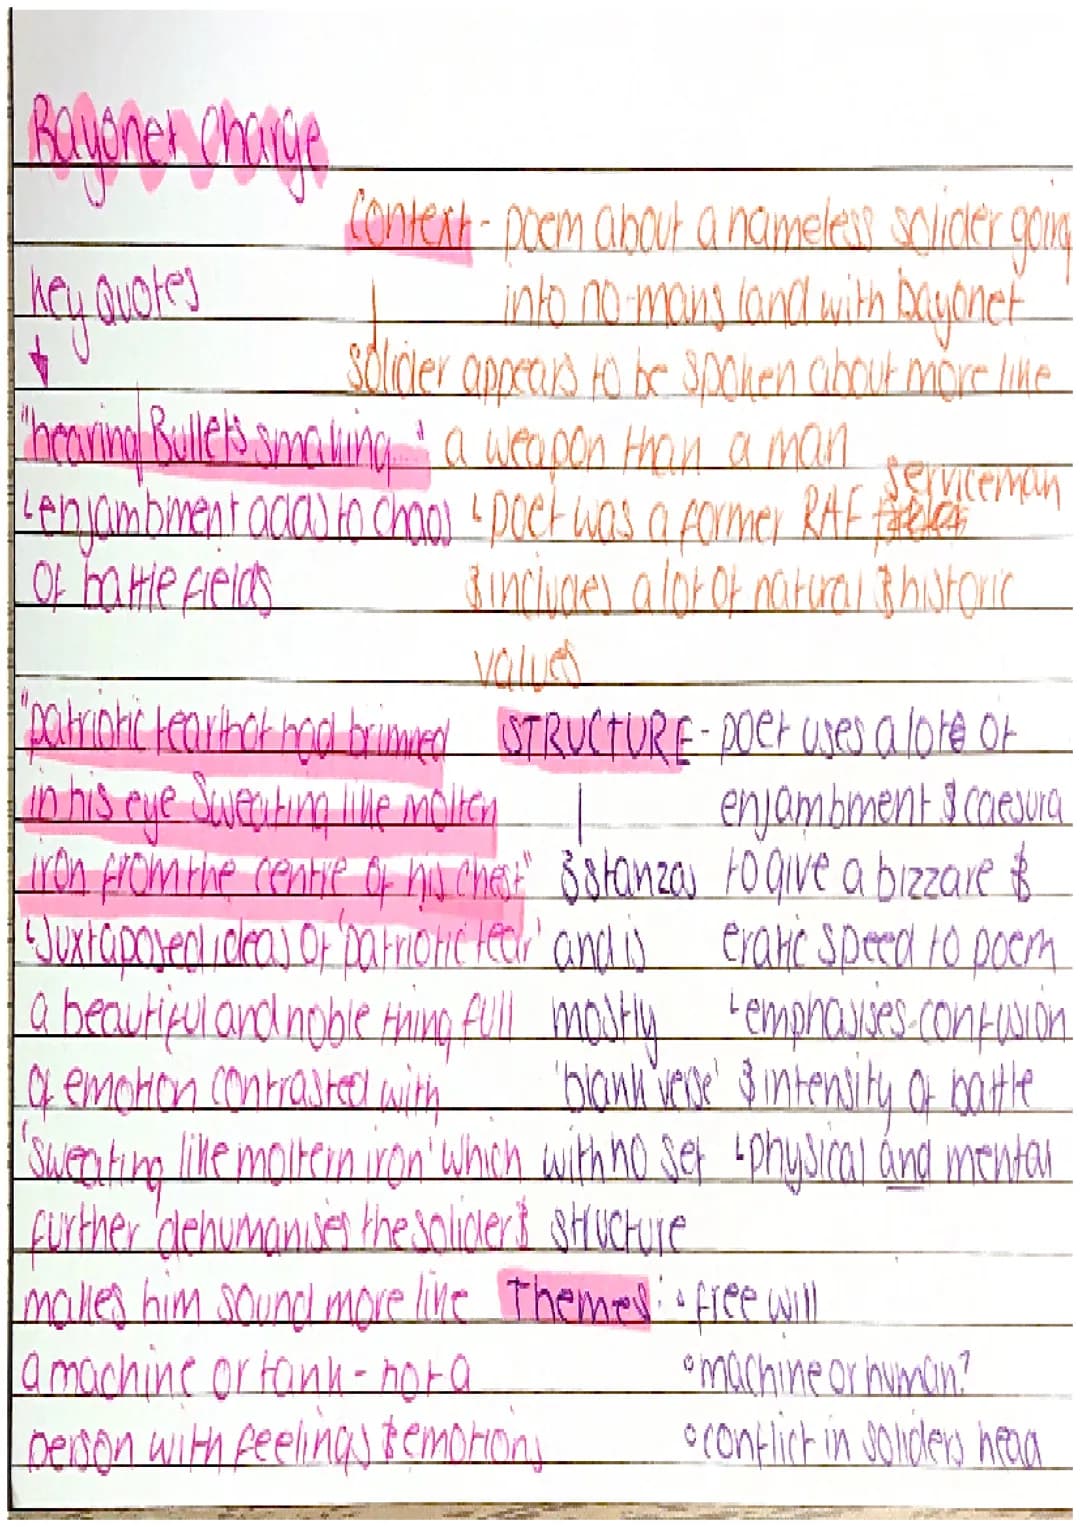 Bayonet Charge
Context - poem about a nameless solider going
into no-mans land with bayonet
solider appears to be spoken about more like
a weapon than a man
↳ poet was a former RAF serviceman
& includes a lot of natural & historic
values
key quotes
"hearing Bullets smaking..."
↳ enjambment adds to chaos
of battle fields
"patriotic tear that had brimmed
in his eye Sweating like molten
iron from the centre of his chest"
↳ Juxtaposed ideas of 'patriotic tear'
a beautiful and noble thing full
of emotion contrasted with
'sweating like moltern iron' which
further dehumanises the solider &
makes him sound more like
a machine or tank - not a
person with feelings & emotions
STRUCTURE - poet uses a lote of
enjambment & caesura
to give a bizzare &
eratic speed to poem
↳ emphasises confusion
& intensity of battle
↳ physical and mental
3 stanzas
and is
mostly
'blank verse'
with no set
structure
Themes: • free will
• machine or human?
• conflict in soliders head